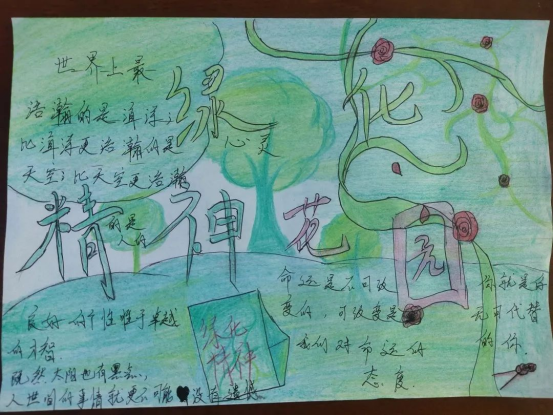 世界上最
浩瀚的是海洋;
比海洋更浩瀚的是
天空;比天空更浩瀚
的是
人的
心灵
绿化
精神花园
绿化
精神
命运是不可改
变的,可改变是
我们对命运的
态度.
你就是你
无可代替
的你.
良好的个性胜于卓越
的才智.
既然太阳也有黑点,
人世间的事情就更不可能没有遗憾